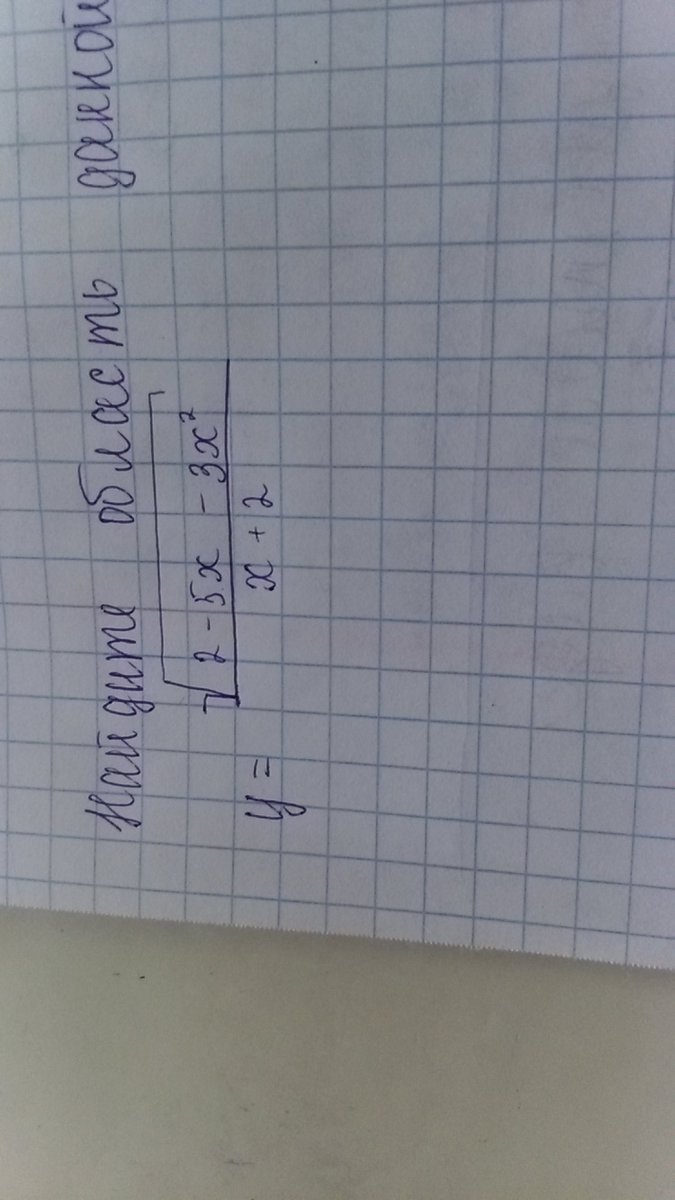 Найдите область данной
y = √2 - 5x - 3x²
x + 2